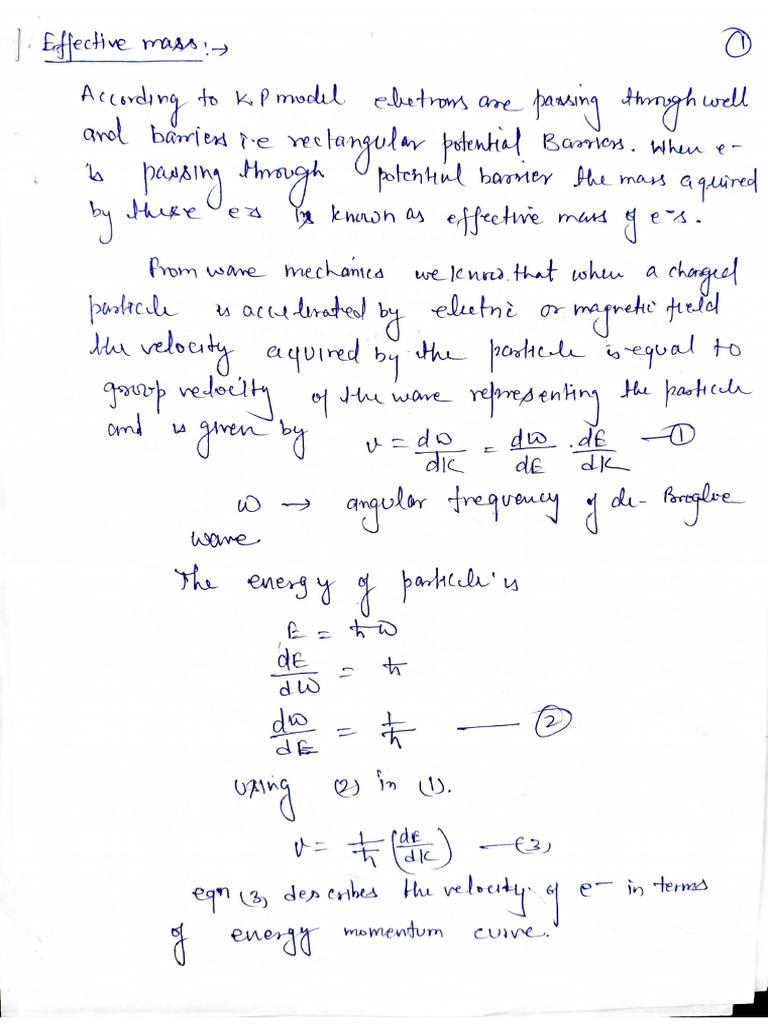 1. Effective mass:→ ①
According to K.P model elctrons are passing through well
and barriers i.e rectangular potential Barriers. When e-
is passing through potential barrier the mass aquired
by these es is known as effective mass of e-s.
From wave mechanics we know that when a charged
particle is accelerated by electric or magnetic field
the velocity aquired by the particle is equal to
group velocity of the wave representing the particle
and is given by v = dω/dK = dω/dE . dE/dK —①
ω → angular frequency of de-Broglie
wave
The energy of particle is
E = ħω
dE/dω = ħ
dω/dE = 1/ħ —— ②
using (2) in (1).
v = 1/ħ (dE/dK) —(3)
eqn (3) describes the velocity of e- in terms
of energy momentum curve.